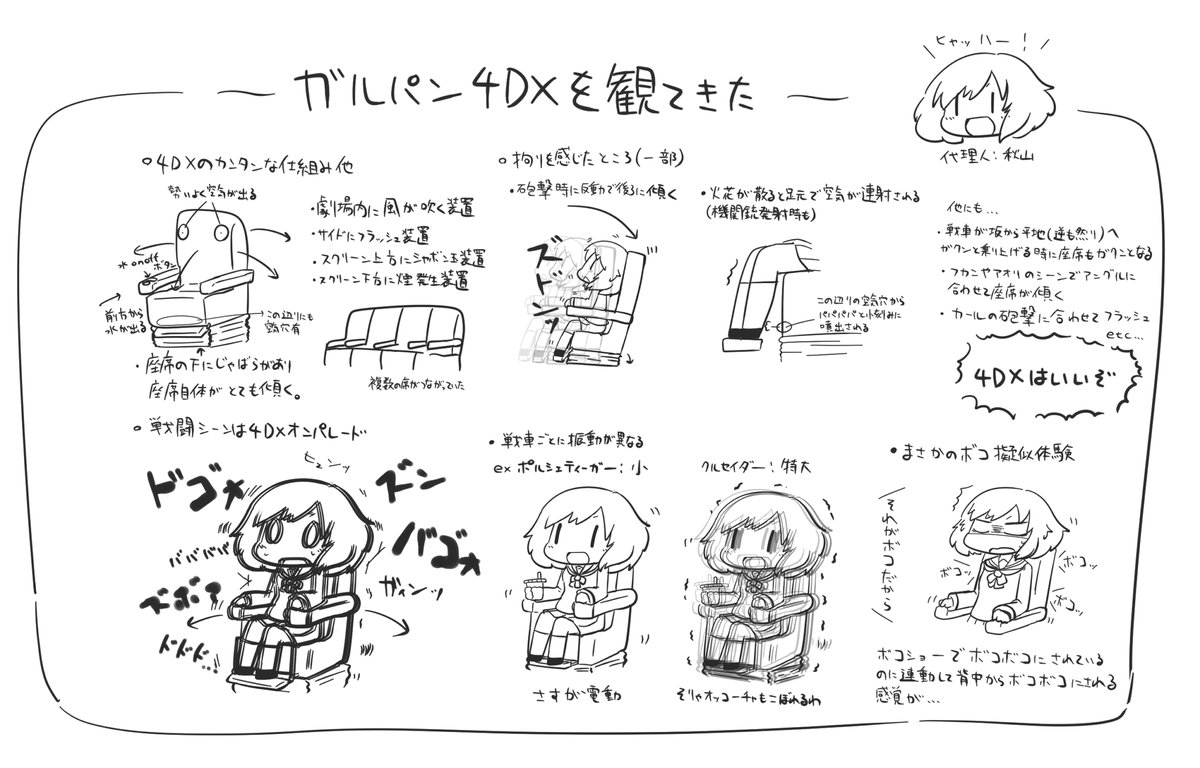 ガルパン4DXを観てきた
ヒャッハー！
代理人：秋山
○4DXのカンタンな仕組み他
勢いよく空気が出る
水on/off
ボタン
前方から
水が出る
この辺りにも
空気穴有
・座席の下にじゃばらがあり
座席自体がとても傾く。
・劇場内に風が吹く装置
・サイドにフラッシュ装置
・スクリーン上方にシャボン玉装置
・スクリーン下方に煙発生装置
複数の席がつながっていた
○拘りを感じたところ(一部)
・砲撃時に反動で後ろに傾く
ズドンッ
・火花が散ると足元で空気が連射される
(機関銃発射時も)
この辺りの空気穴から
パパパパと小刻みに
噴出される
他にも…
・戦車が坂から平地(逆も然り)へ
ガクンと乗り上げる時に座席もガクンとなる
・フカンやアオリのシーンでアングルに
合わせて座席が傾く
・カールの砲撃に合わせてフラッシュ
etc…
4DXはいいぞ
○戦闘シーンは4DXオンパレード
ヒュンッ
ドゴォ
ズン
バゴォ
ババババ
ガィンッ
ドドドド…
・戦車ごとに振動が異なる
ex ポルシェティーガー：小
さすが電動
クルセイダー：特大
そりゃオッコーチャもこぼれるわ
・まさかのボコ擬似体験
それがボコだから
ボコッ
ボコッ
ボコッ
ボコショーでボコボコにされている
のに連動して背中からボコボコにされる
感覚が…